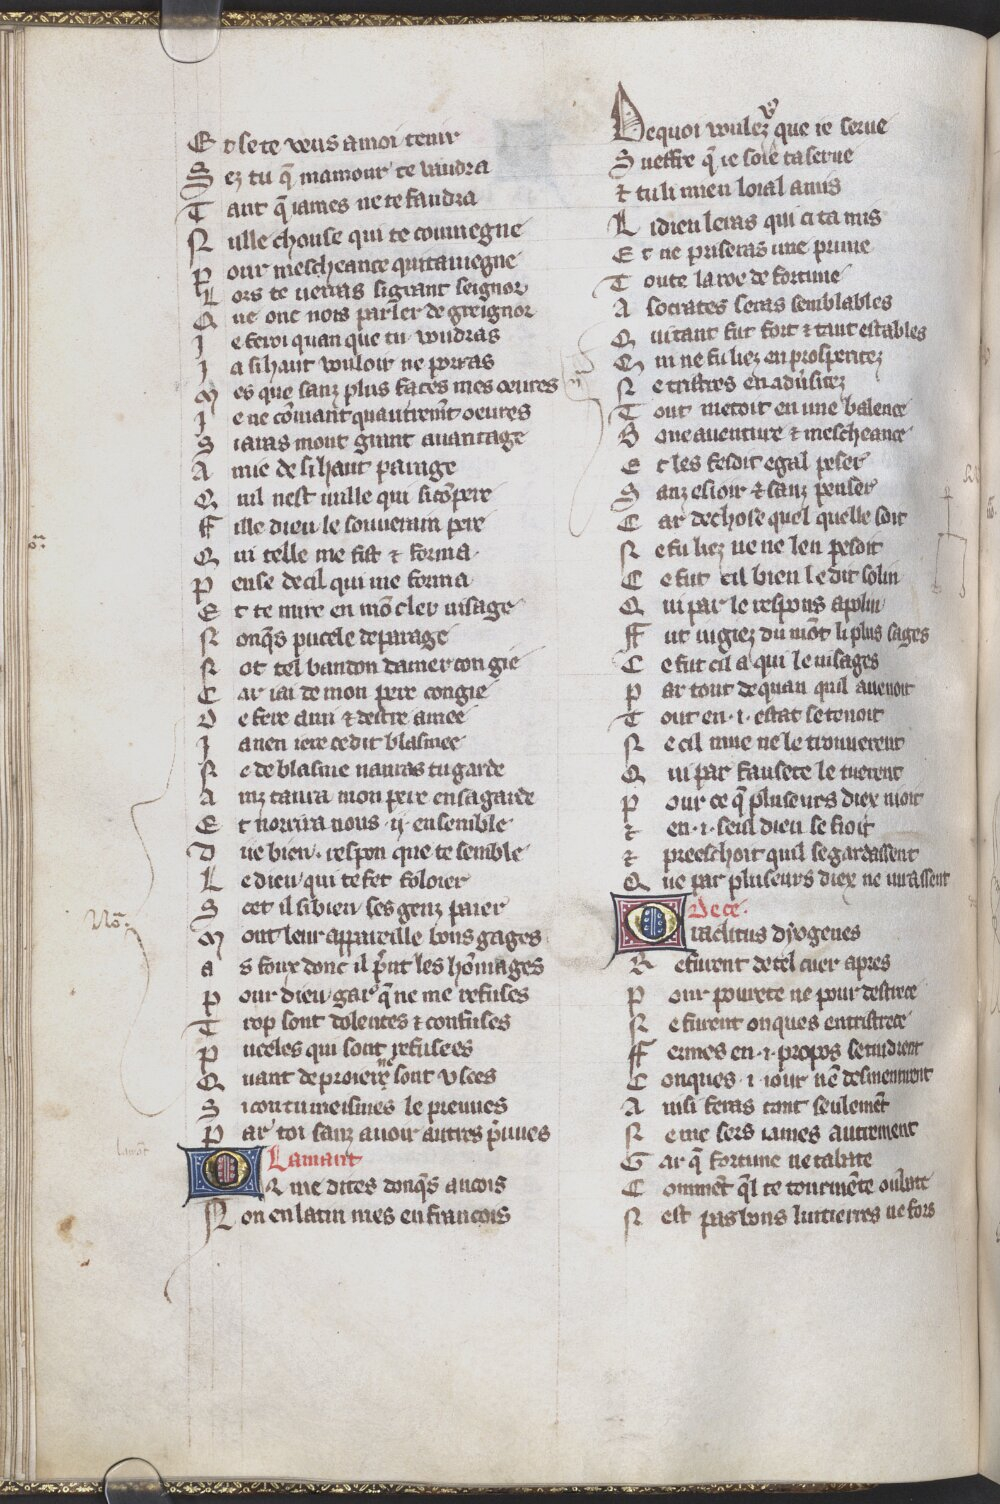 E t se te veus a moi tenir
S ez tu q̃ mamour te vaudra
T ant q̃ iames ne te faudra
N ulle chouse qui te couuiegne
P our mescheance qui tauiegne
L ors te uerras si grant seignor
Q ue onc nois parler de greignor
J e feroi quan que tu voudras
J a si haut vouloir ne porras
M es que sanz plus faces mes oeures
J e ne cõuiant quautremt̃ oeures
S iaras mout grant auantage
A mie de si haut parage
Q uil nest nulle qui si cõpere
F ille dieu le souuerain pere
Q ui telle me fist ⁊ forma
P ense de cil qui me forma
E t te mire en mõ cler uisage
N onq̃s pucele de parage
N ot tel bandon damer con gie
C ar iai de mon pere congie
D e fere ami ⁊ destre amee
J a nen iere ce dit blasmee
N e de blasme nauras tu garde
A inz taura mon pere en sa garde
E t norrira nous ·ij· ensemble
D ue bien· respon que te semble
L e dieu qui te fet foloier
S cet il si bien ses genz paier
M out leur appareille bons gages
a s foux donc il p̃nt les hõmages
P our dieu gar q̃ ne me refuses
T rop sont dolentes ⁊ confuses
P uceles qui sont refusees
Q uant de proiere ne sont vsees
S i con tu meismes le preuues
P ar toi sanz auoir autres p̃uues
Lamant
O R me dites donq̃s ancois
N on en latin mes en francois
De quoi voulez vo que ie serue
S ueffre q̃ ie soie ta serue
⁊ tu li mien loial amis
L i dieu leras qui ci ta mis
E t ne priseras une prune
T oute la roe de fortune
A socrates seras semblables
Q ui tant fut fort ⁊ tant estables
Q ui ne fu liez en prosperitez
N e tristres en adũsitez
T out metoit en une balence
B one auenture ⁊ mescheance
E t les fesoit egal peser
S anz esioir ⁊ sanz penser
C ar de chose quel quelle soit
N e fu liez ne ne len pesoit
C e fut cil bien le dit solin
Q ui par le respons apolin
F ut iugiez du mõt li plus sages
C e fut cil a qui le uisages
P ar tout de quan quil auenoit
T out en ·i· estat se tenoit
N e cil mie ne le trouuerent
Q ui par fausete le tuerent
P our ce q̃ pluseurs diex nioit
⁊ en ·i· seul dieu se fioit
⁊ preeschoit quil se gardassent
Q ue par pluseurs diex ne iurassent
De ce
O iraclitus dyogenes
R efurent de tel cuer apres
P our pourete ne pour destrece
N e furent onques en tristrece
F ermes en ·i· propos se tindrent
C onques ·i· iour nẽ desmentirent
A insi feras tant seulemẽt
N e me sers iames autrement
G ar q̃ fortune ne tabate
C ommẽt q̃l te tourmẽte
N est pas bons luitierres ne fors
No͂
lamãt